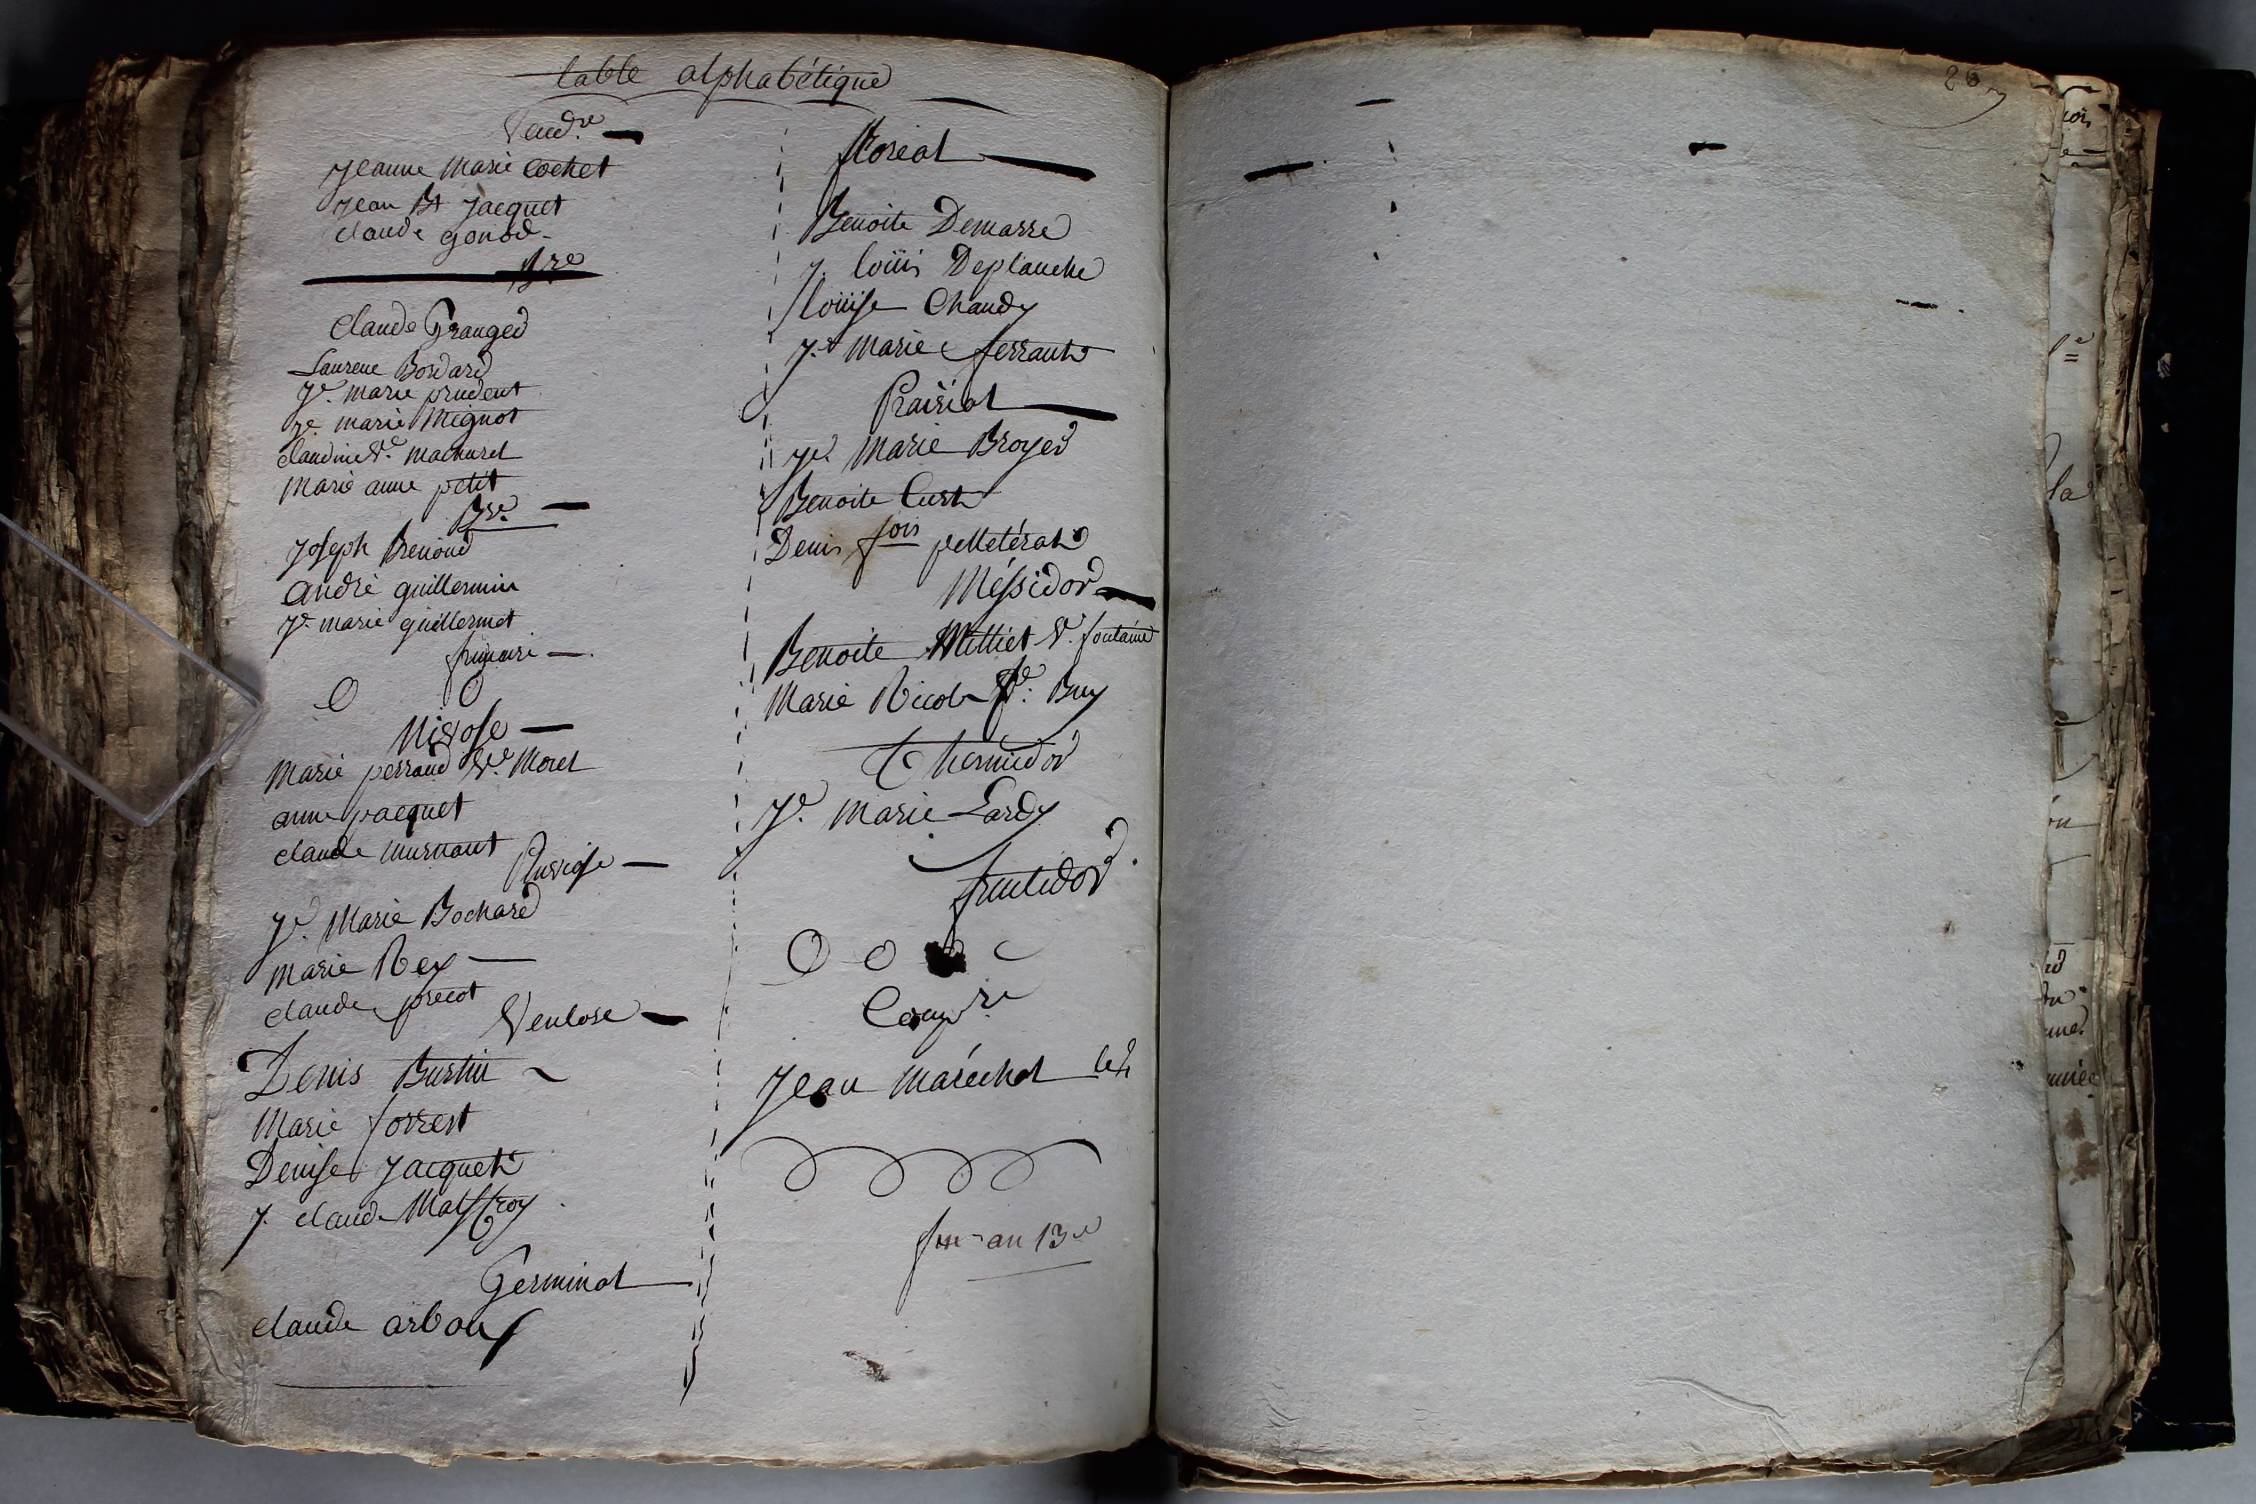 table alphabétique
Vend.re
Jeanne Marie Cochet
Jean Bt Jacquet
claude gonod
Bre
Claude Granged
Laurene Bordard
Je. marie prudent
Je. marie Mignot
claudine Ve. machurel
Marie anne petit
Bre.
Joseph Brenoud
andré guillermin
Je. marie guillermet
frimaire
0 0
Nivose
Marie perraud Ve. Morel
anne pacquet
claude murnant
Pluviose
Je. Marie Bochard
Marie Rey
claude precot
Ventose
Denis Burtin
Marie forrest
Denise Jacquet
J. claude Matffroy
Germinal
claude arbau
floréal
Benoite Demarre
J. loüis Deplanche
loüise Chaudy
Je. Marie ferrant
Prairial
Je. Marie Broyer
Benoite Curt
Denis fois pelletérat
Méssidor
Benoite Milliet Ve. fontaine
Marie Nicole fe. Buy
Thermidor
Je. Marie Lardy
fructidor
0 0
Comp.re
Jean maréchal
fin an 13e